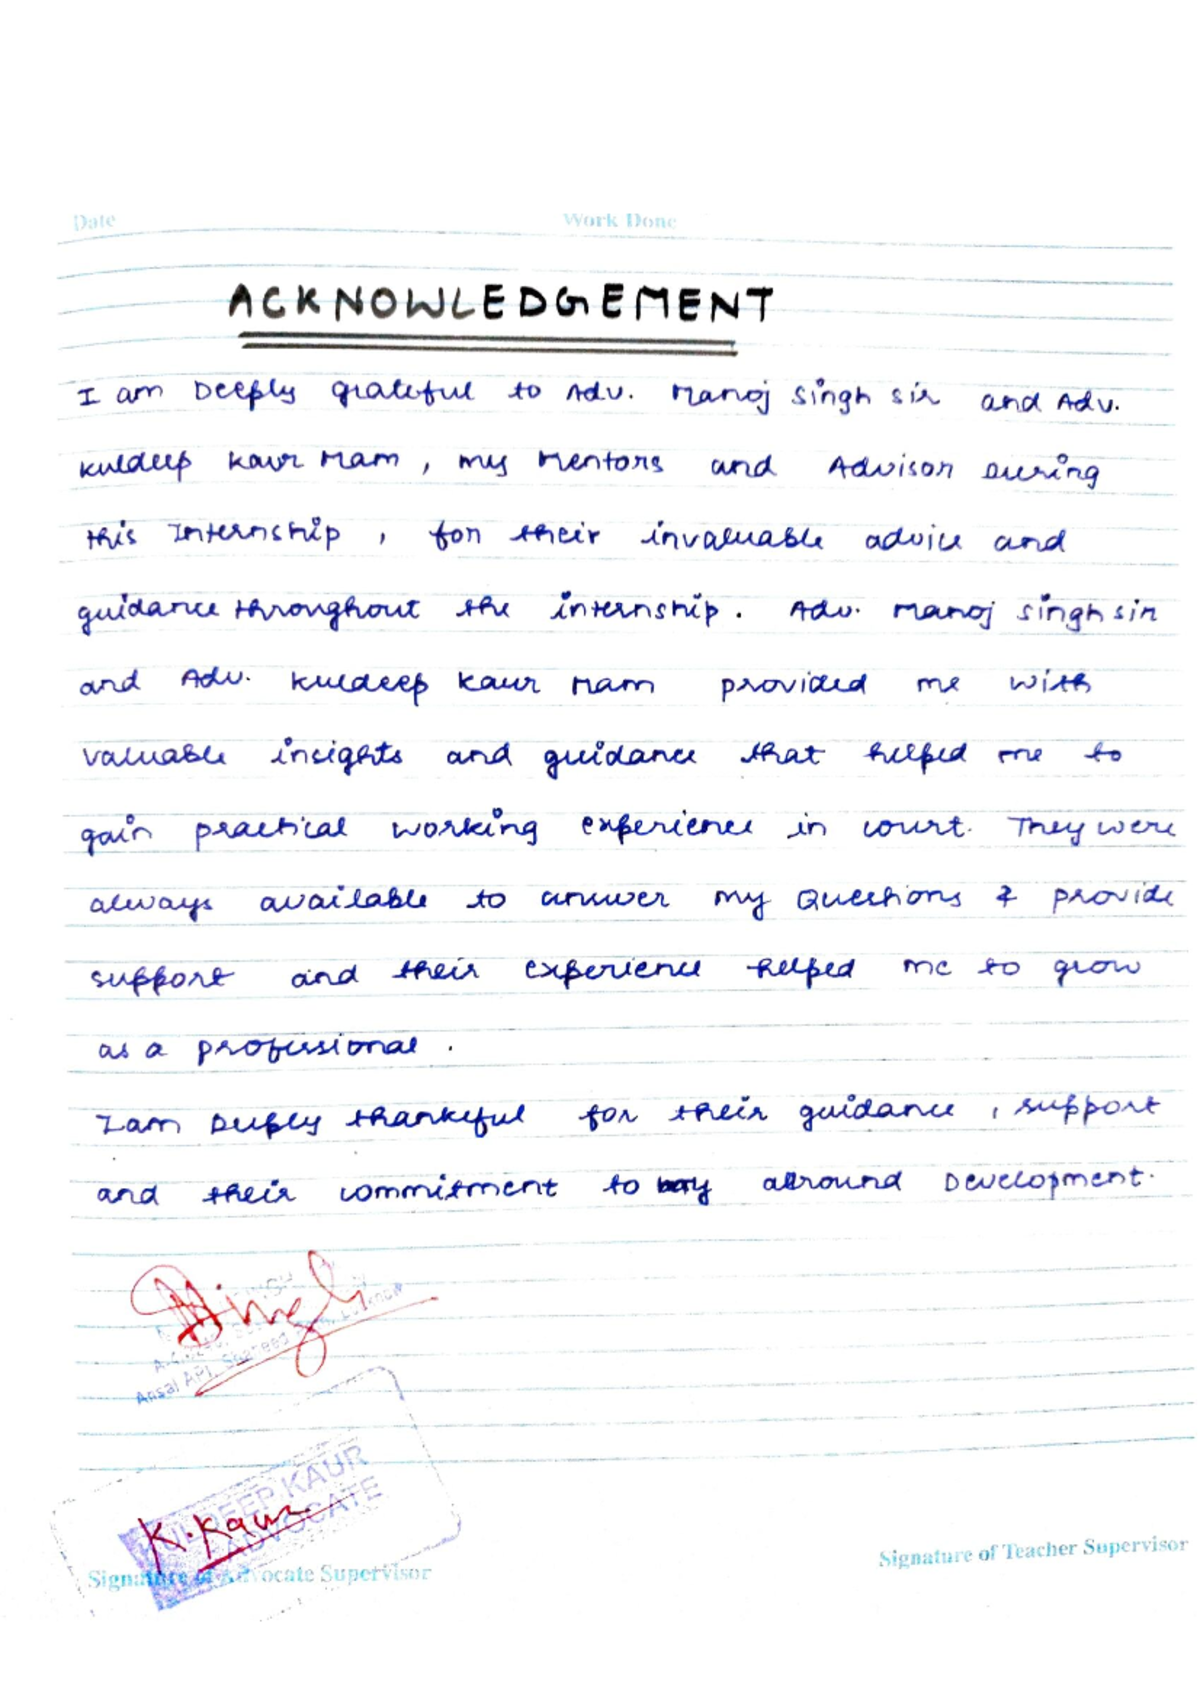 Date Work Done
ACKNOWLEDGEMENT
I am Deeply grateful to Adv. Manoj Singh sir and Adv.
Kuldeep Kaur Mam, my Mentors and Advisor During
this Internship, for their invaluable advice and
guidance throughout the internship. Adv. Manoj Singh sir
and Adv. Kuldeep Kaur Mam provided me with
valuable insights and guidance that helped me to
gain practical working experience in court. They were
always available to answer my Questions & provide
support and their experience helped me to grow
as a professional.
I am Deeply thankful for their guidance, support
and their commitment to my allround Development.
Singh
Ansal API, Shaheed
KULDEEP KAUR
ADVOCATE
K. Kaur
Signature of Advocate Supervisor
Signature of Teacher Supervisor